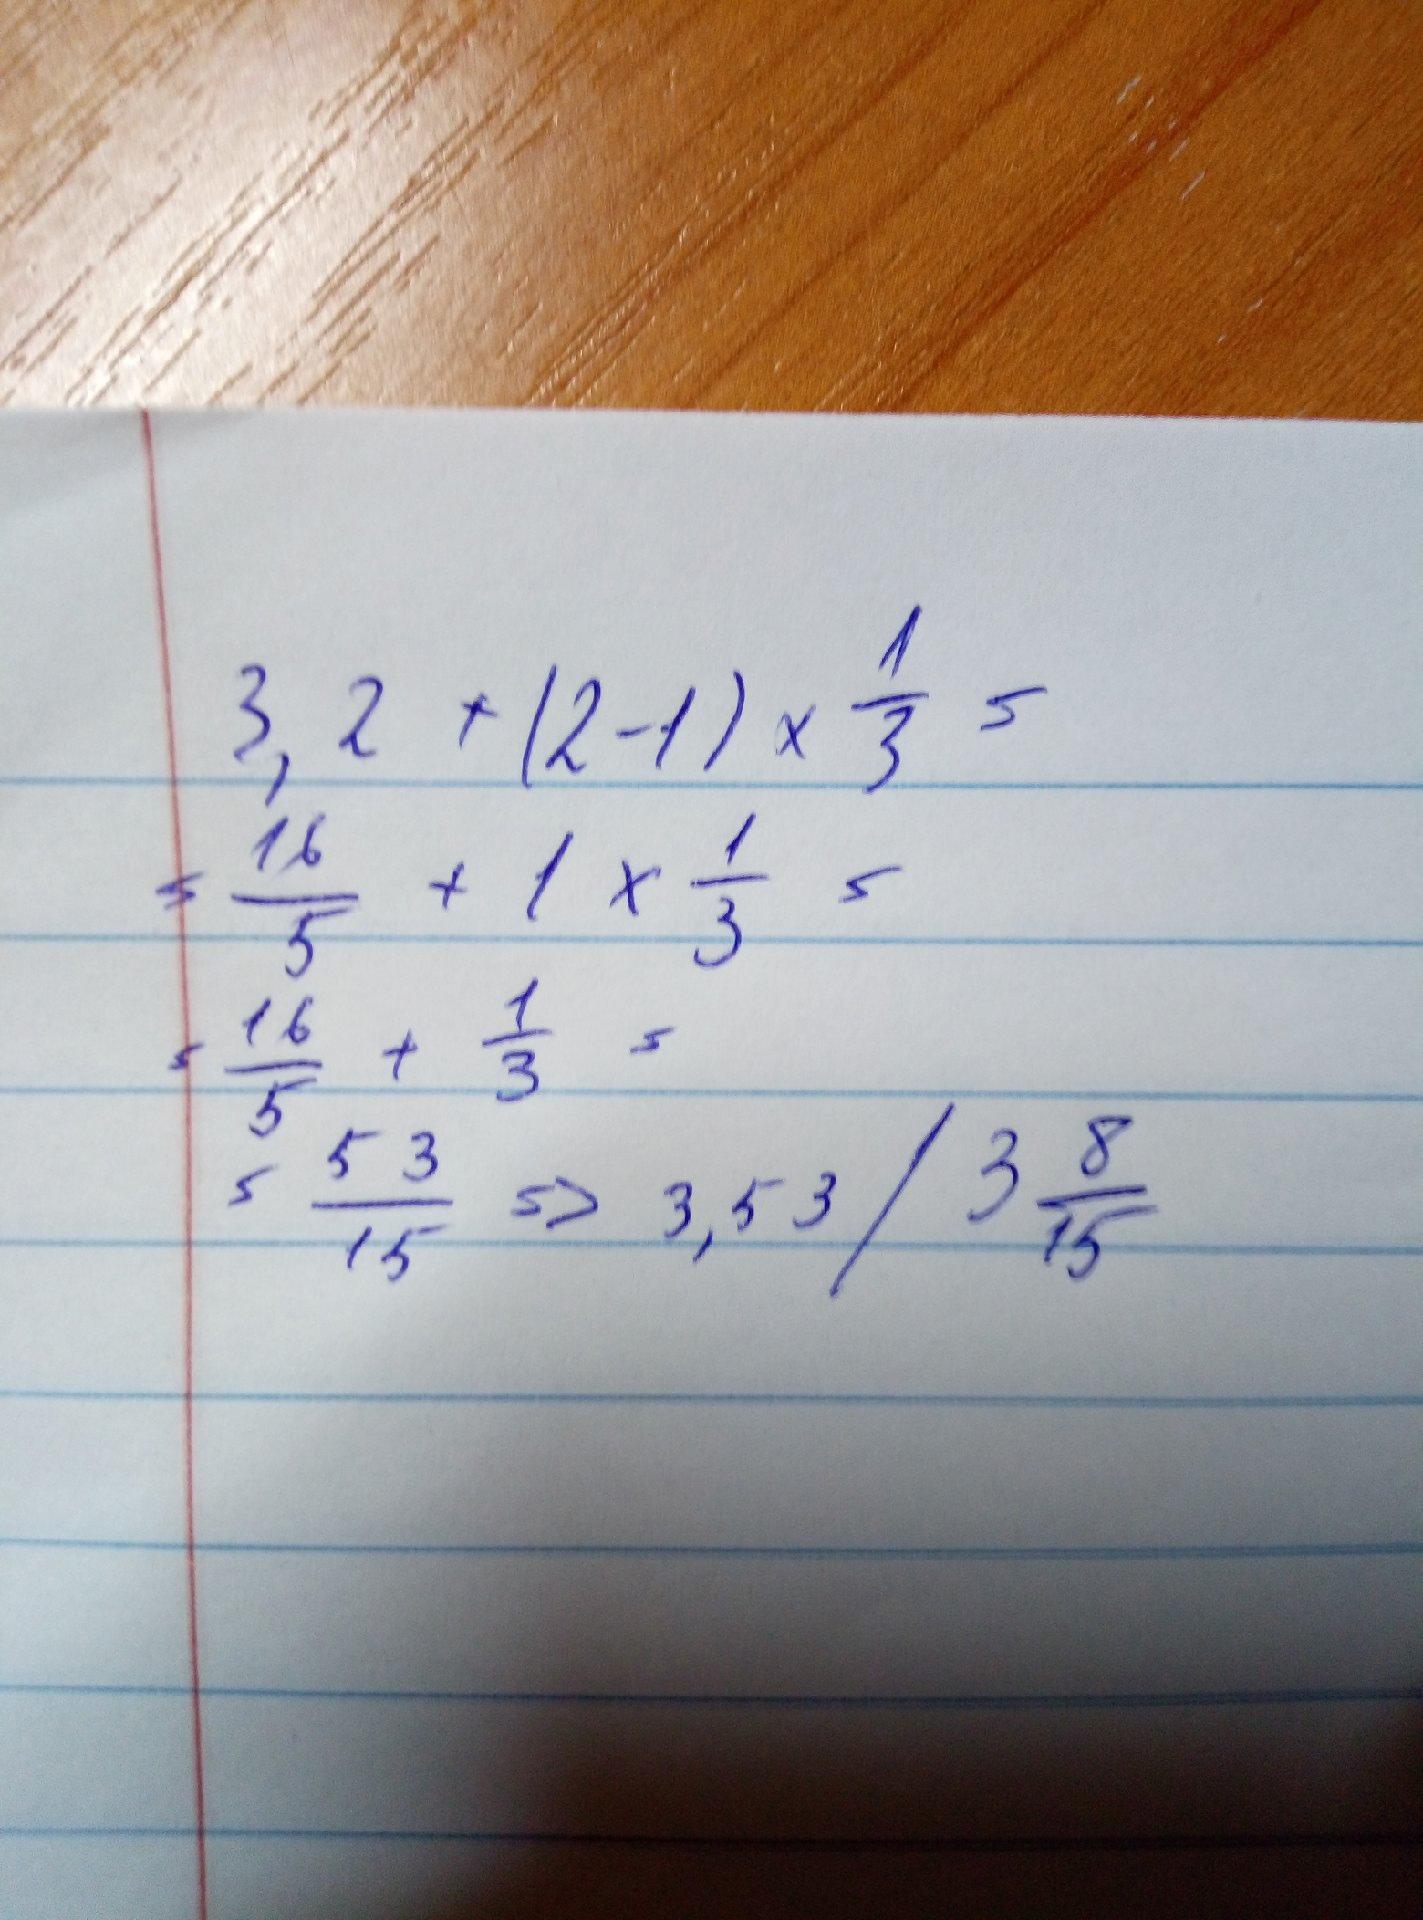 3,2 + (2-1) × 1/3 =
= 16/5 + 1 × 1/3 =
= 16/5 + 1/3 =
= 53/15 => 3,53 / 3 8/15